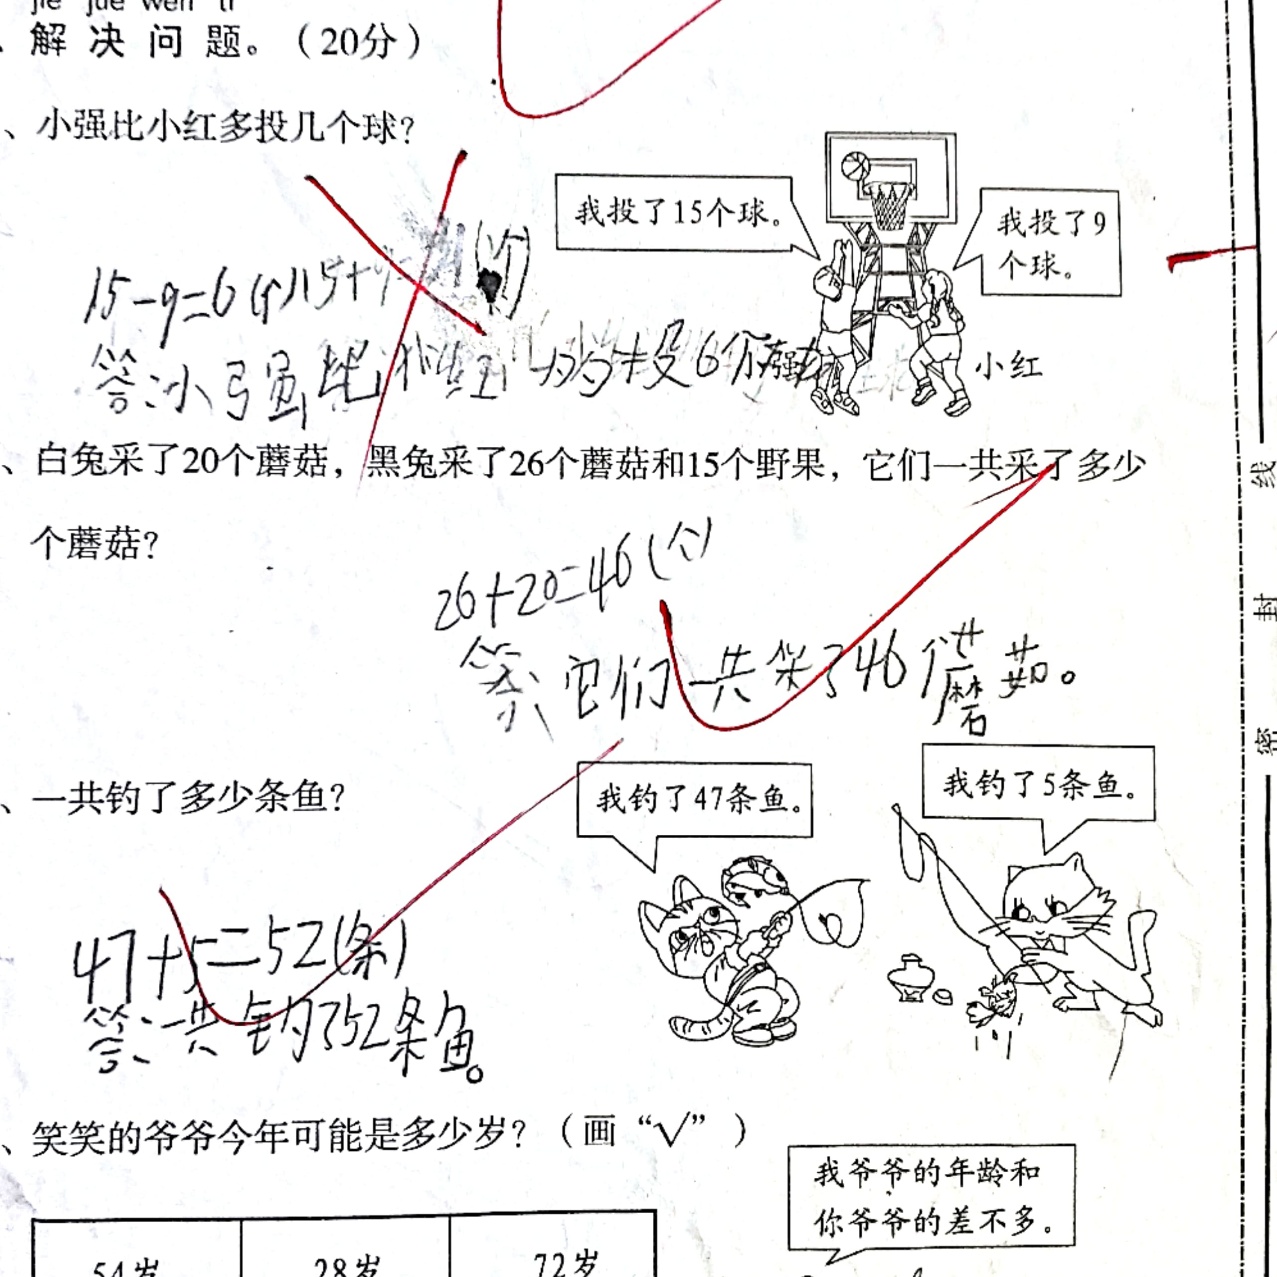 jie jue wen ti
解决问题。（20分）
、小强比小红多投几个球？
我投了15个球。
我投了9
个球。
15-9=6(个)15+9=
答:小强比
多投6个
小红
、白兔采了20个蘑菇，黑兔采了26个蘑菇和15个野果，它们一共采了多少
个蘑菇？
26+20=46(个)
答:它们一共采了46个蘑菇。
、一共钓了多少条鱼？
我钓了47条鱼。
我钓了5条鱼。
47+5=52(条)
答:一共钓了52条鱼。
、笑笑的爷爷今年可能是多少岁？（画“√”）
我爷爷的年龄和
你爷爷的差不多。
54岁 28岁 72岁
线
封
密